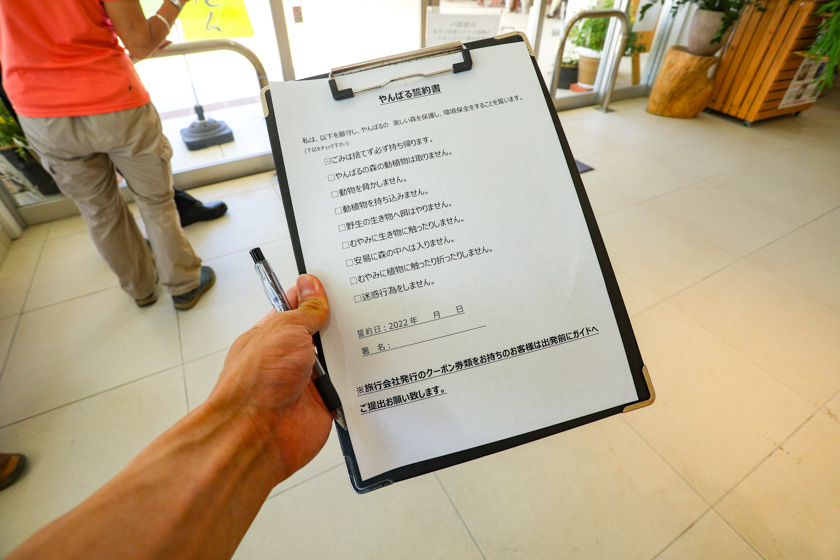 やんばる誓約書
私は、以下を厳守し、やんばるの 美しい森を保護し、環境保全をすることを誓います。
(下記をチェック下さい)
☑ごみは捨てず必ず持ち帰ります。
□やんばるの森の動植物は取りません。
□動物を脅かしません。
□動植物を持ち込みません。
□野生の生き物へ餌はやりません。
□むやみに生き物に触ったりしません。
□安易に森の中へは入りません。
□むやみに植物に触ったり折ったりしません。
□迷惑行為をしません。
誓約日：2022年 月 日
署 名：
※旅行会社発行のクーポン券類をお持ちのお客様は出発前にガイドへ
ご提出お願い致します。